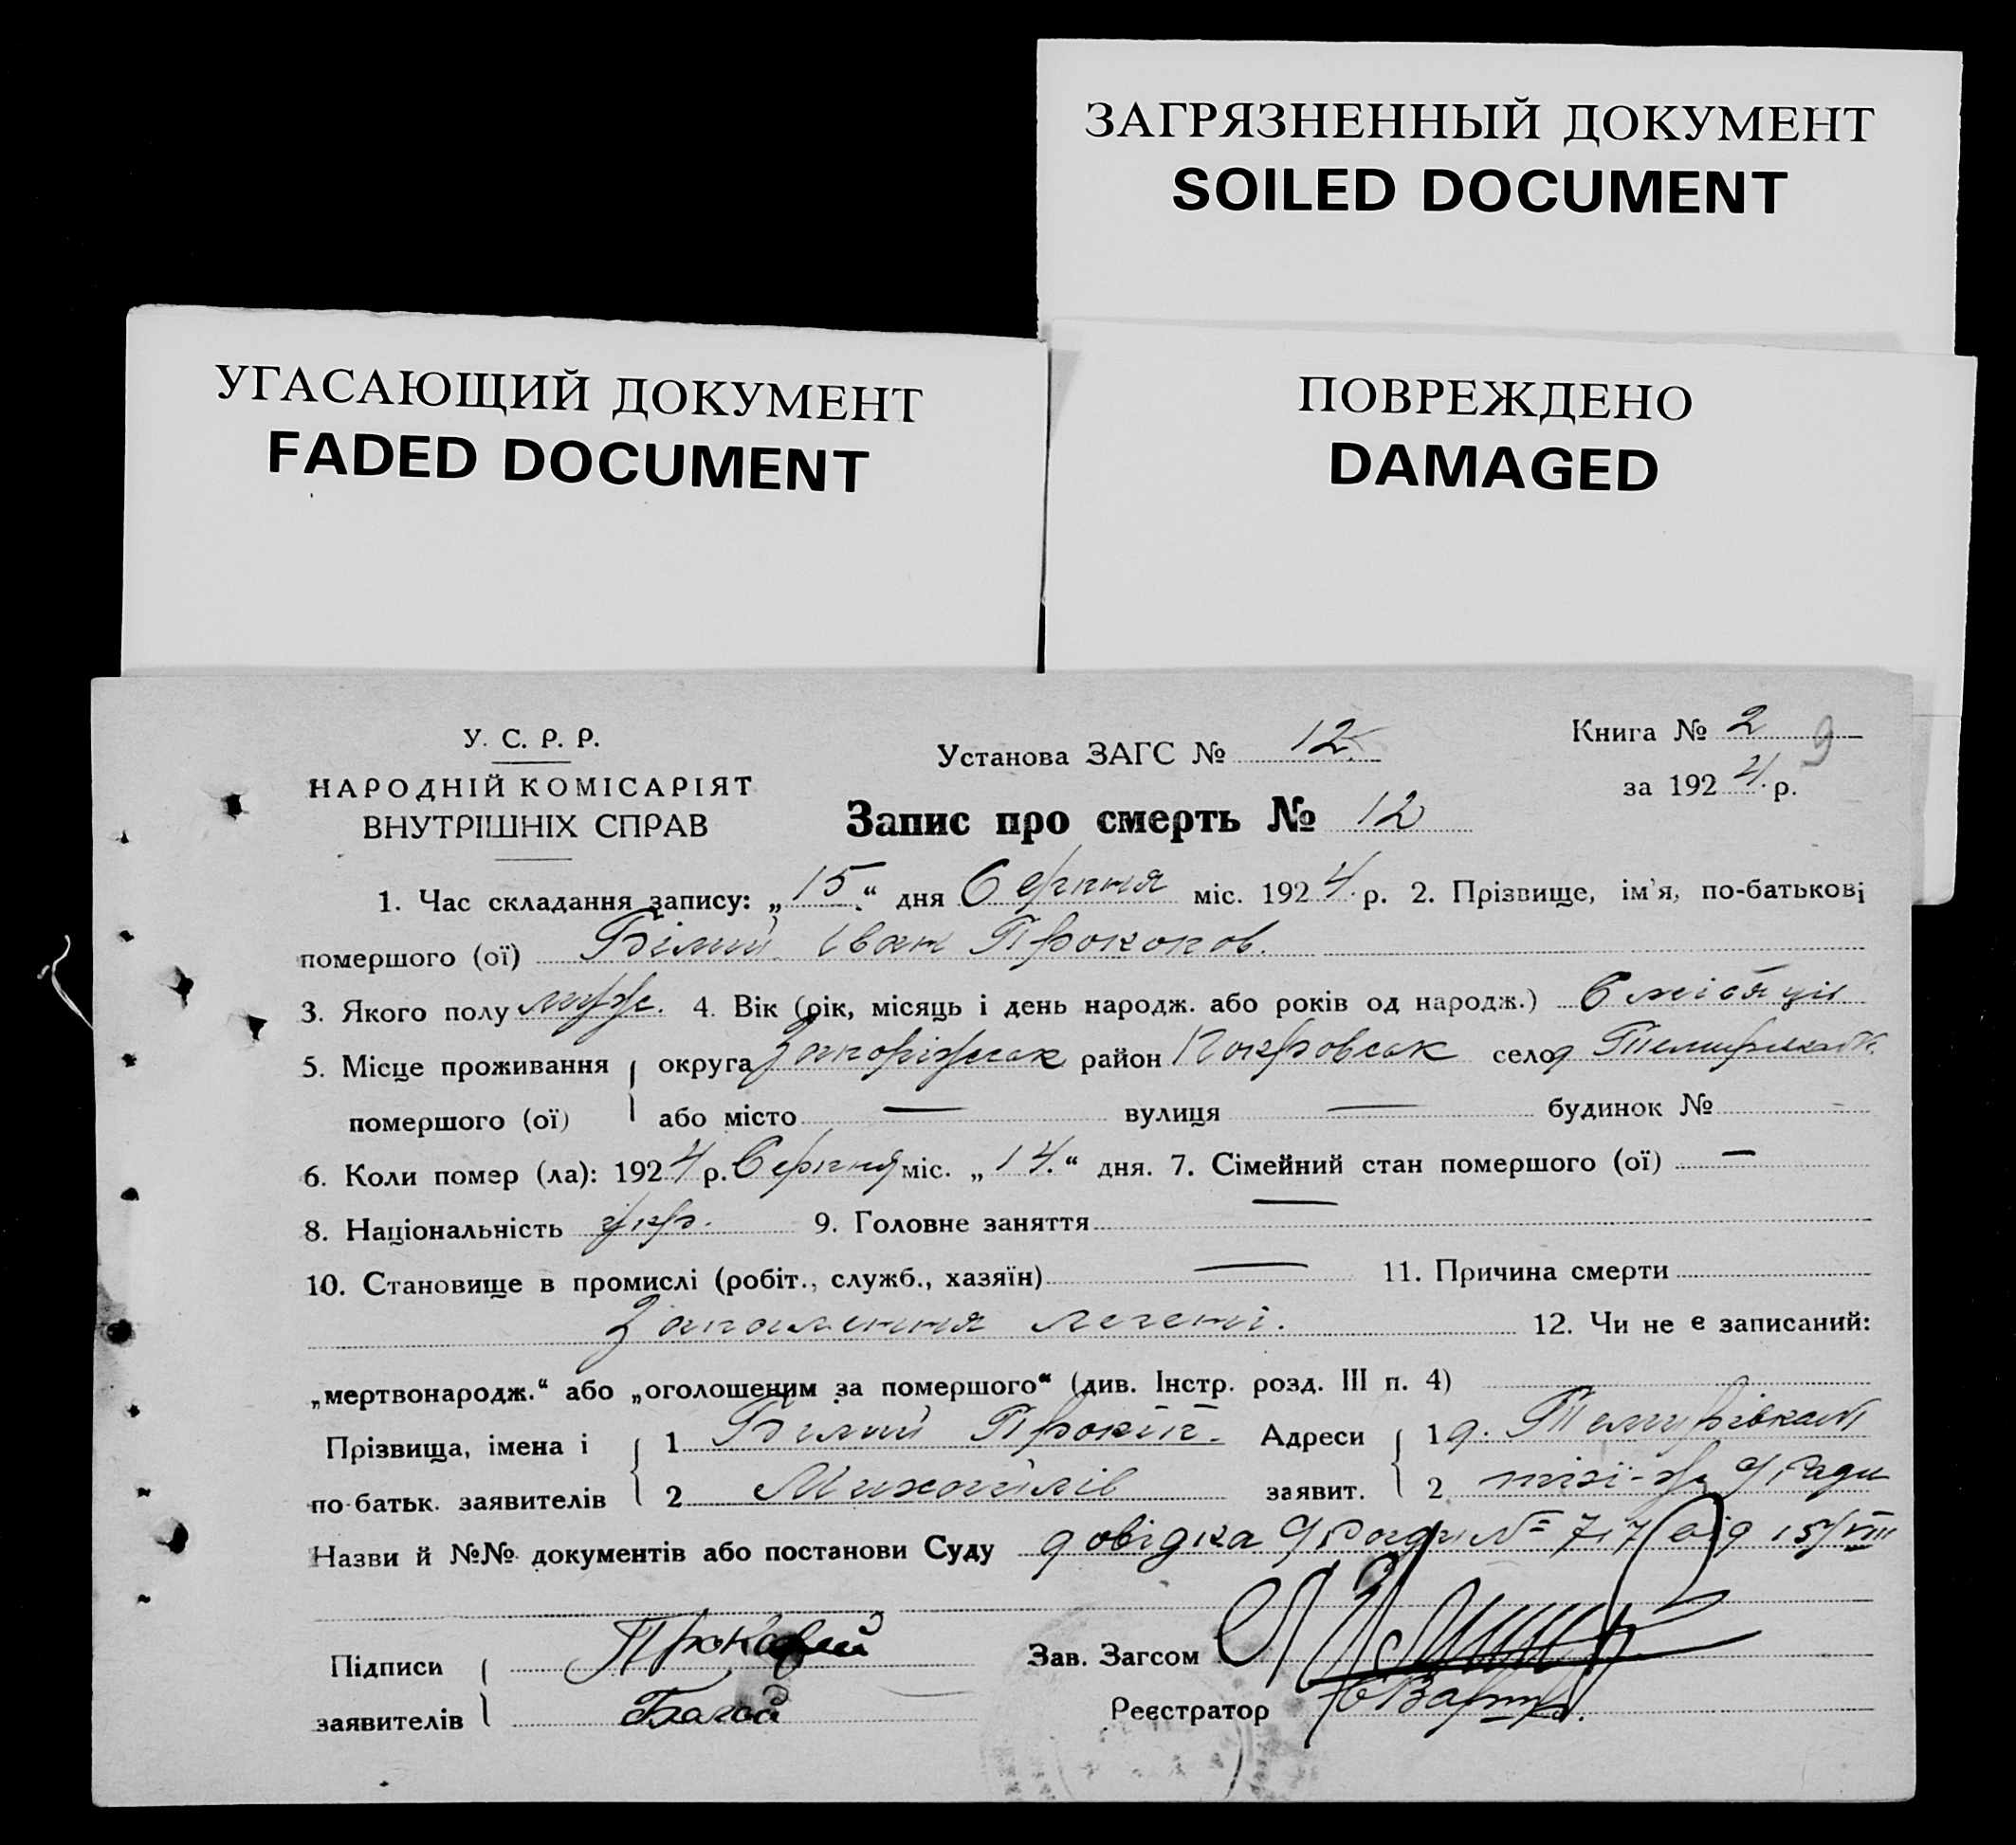 ЗАГРЯЗНЕННЫЙ ДОКУМЕНТ
SOILED DOCUMENT
УГАСАЮЩИЙ ДОКУМЕНТ
FADED DOCUMENT
ПОВРЕЖДЕНО
DAMAGED
У. С. Р. Р.
НАРОДНІЙ КОМІСАРІЯТ
ВНУТРІШНІХ СПРАВ
Установа ЗАГС № 12
Запис про смерть № 12
Книга № 2 9
за 1924 р.
1. Час складання запису: „15“ дня Серпня міс. 1924 р. 2. Прізвище, ім'я, по-батькові
помершого (ої) Білий Іван Прокопов.
3. Якого полу муж. 4. Вік (рік, місяць і день народж. або років од народж.) 6 місяців
5. Місце проживання округа Запоріжськ район Покровськ село
помершого (ої) або місто — вулиця — будинок №
6. Коли помер (ла): 1924 р. Серпня міс. „14.“ дня. 7. Сімейний стан помершого (ої) —
8. Національність укр. 9. Головне заняття —
10. Становище в промислі (робіт., служб., хазяїн) — 11. Причина смерти
Запалення легені. 12. Чи не є записаний:
„мертвонародж.“ або „оголошеним за помершого“ (див. Інстр. розд. III п. 4)
Прізвища, імена і 1 Білий Прокіп. Адреси 1 д.
по-батьк. заявителів 2 Михайлів заявит. 2 тієї-ж с/Ради
Назви й №№ документів або постанови Суду довідка с/Ради № 717 від 15/VIII
Підписи Зав. Загсом
заявителів Реєстратор